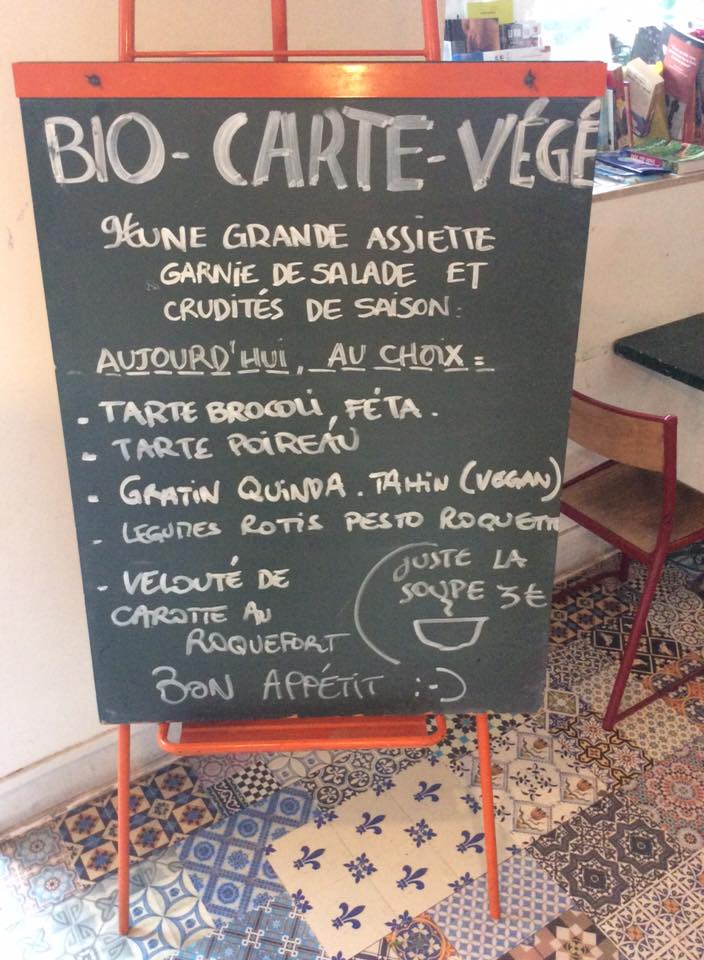 BIO - CARTE - VÉGÉ
9€ UNE GRANDE ASSIETTE
GARNIE DE SALADE ET
CRUDITÉS DE SAISON.
AUJOURD'HUI, AU CHOIX =
- TARTE BROCOLI, FÉTA.
- TARTE POIREAU
- GRATIN QUINOA. TAHIN (VEGAN)
- LEGUMES ROTIS PESTO ROQUETTE
- VELOUTÉ DE
CAROTTE AU
ROQUEFORT
JUSTE LA
SOUPE 3€
BON APPÉTIT :-)